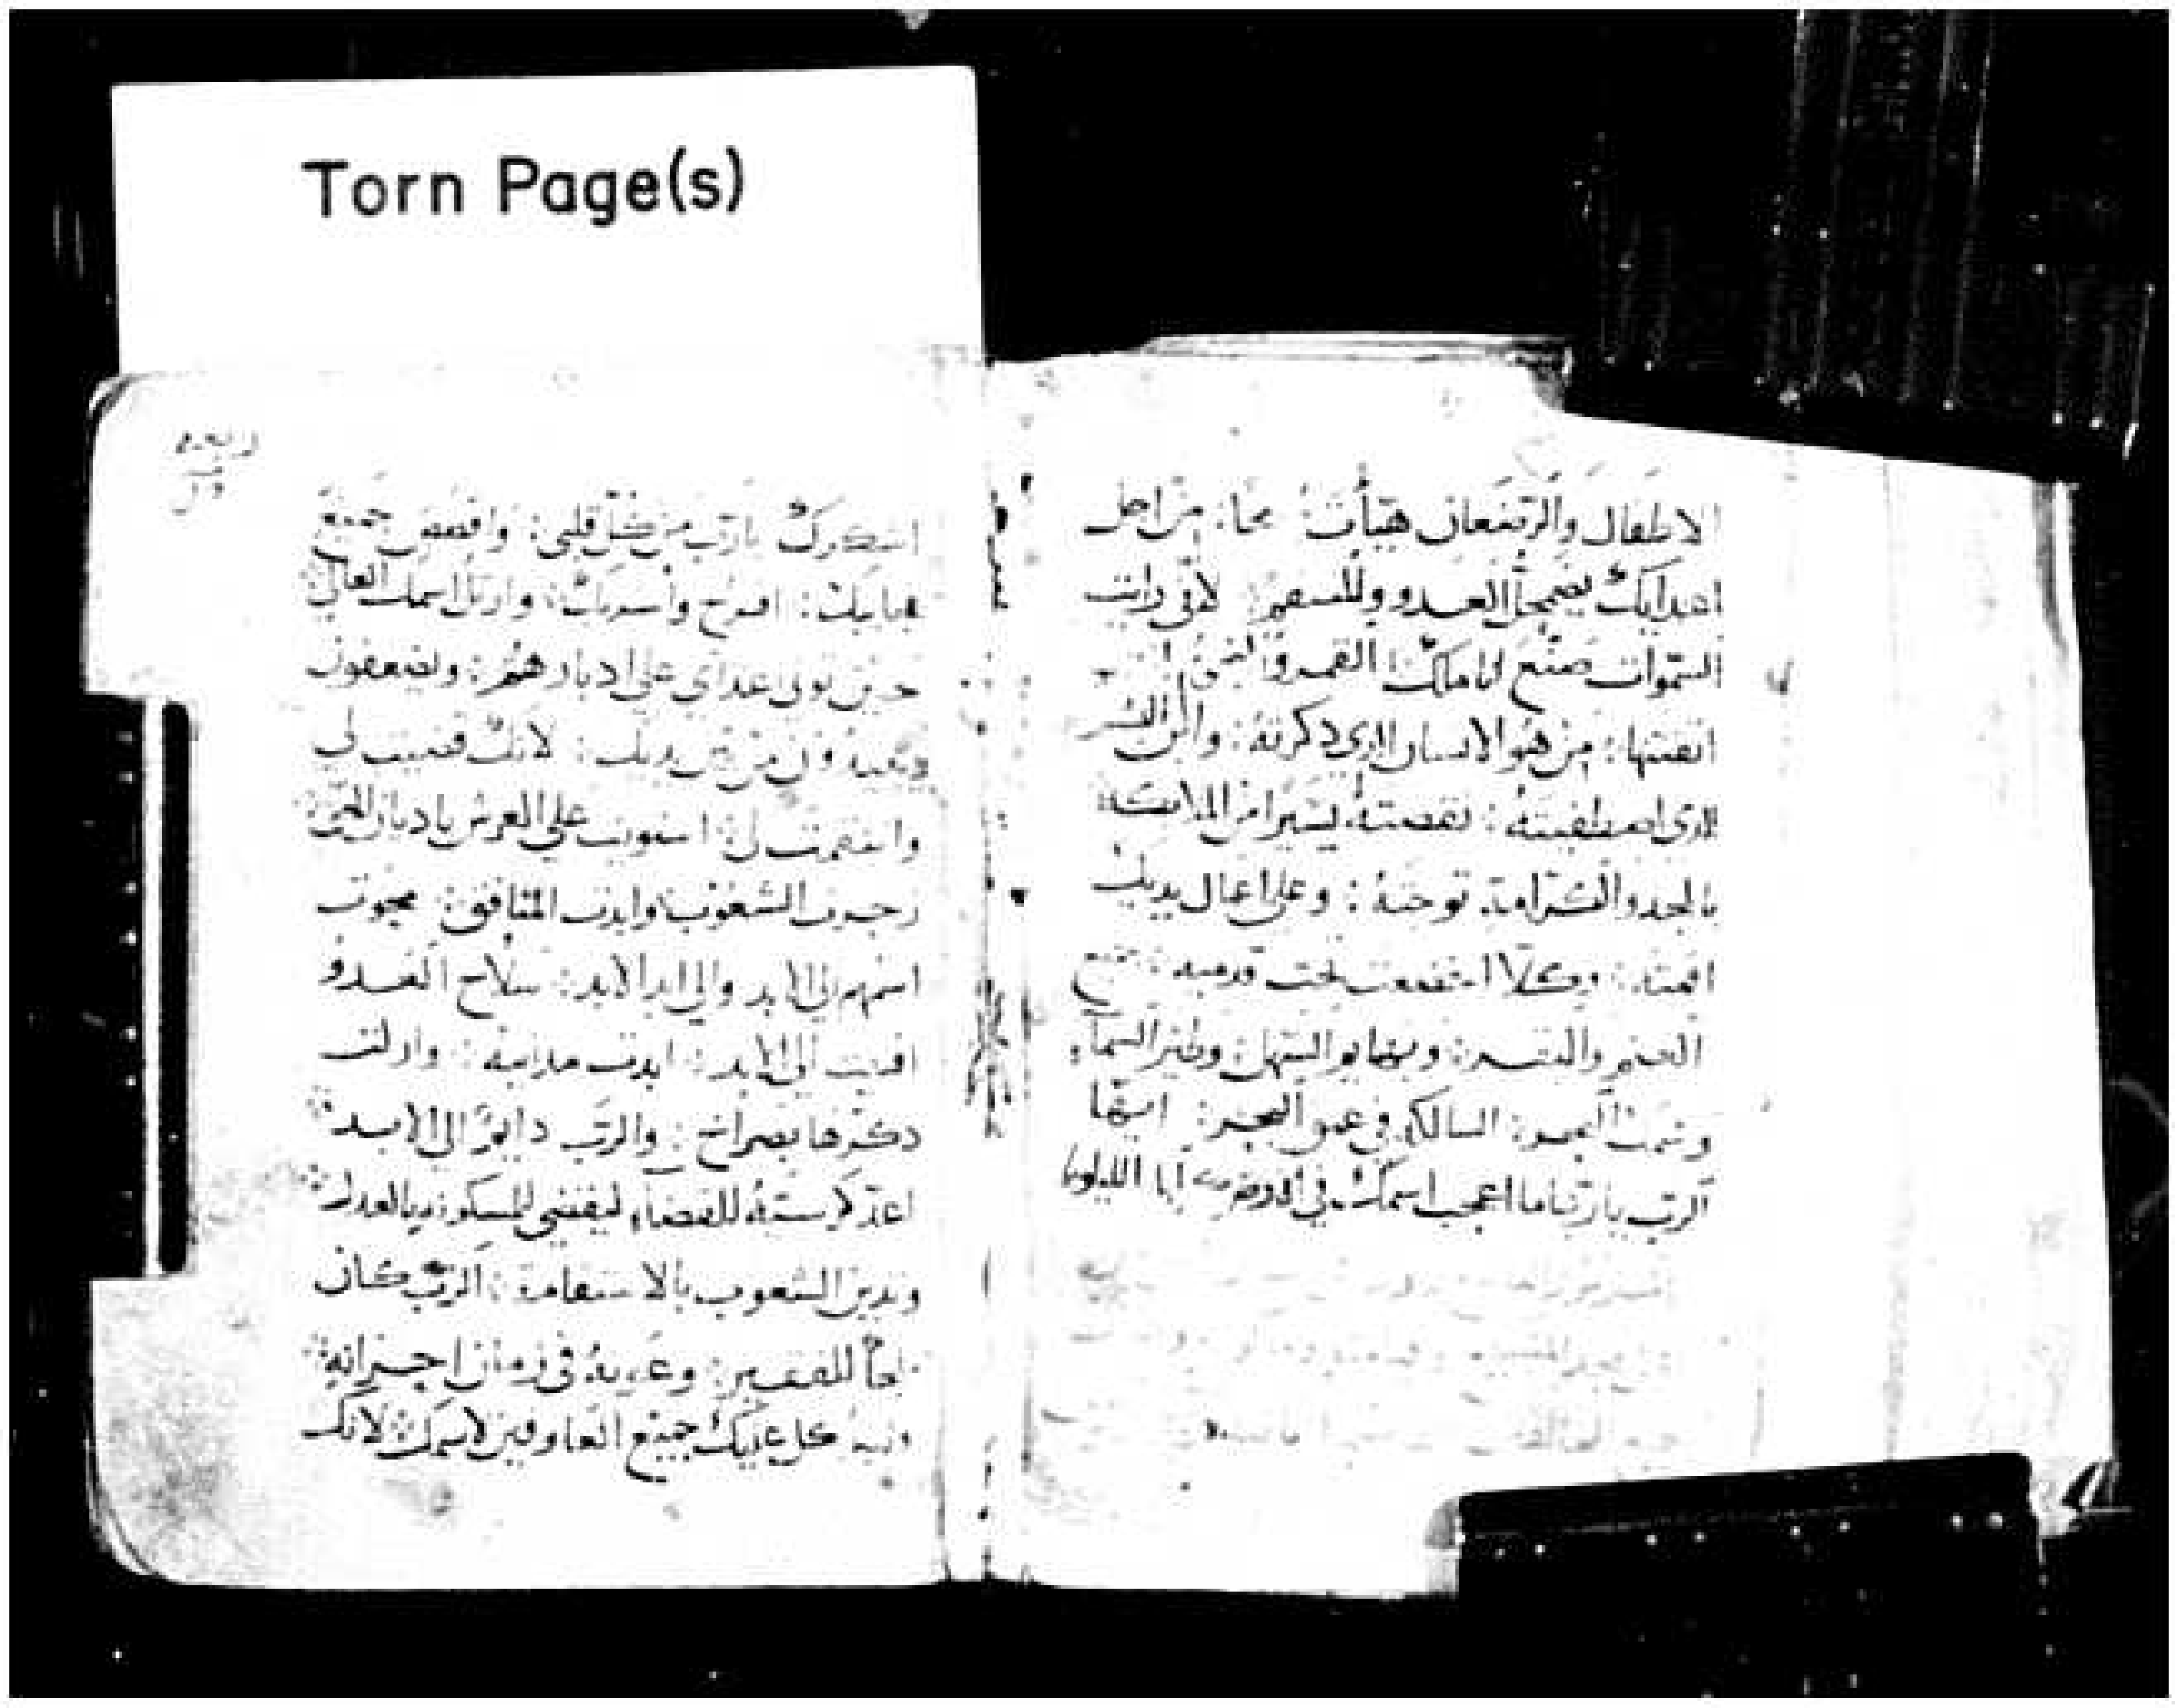 Torn Page(s)
الاطفال والرضعان هيأت سُبحا: من اجل
اعدايك يضمحل العدو والمنتقم: لاني رايت
السموات صنع اناملك: القمر والنجوم انت
اتقنتها: من هو الانسان الذي ذكرته: وابن البشر
الذي اصطفيته: نقصته يسيرا من الملايكة
بالمجد والكرامة توجته: وعلى اعمال يديك
اقمته: وكلا اخضعت تحت قدميه: جميع
الغنم والبقر: وبهايم السهل: وطير السماء
وسمك البحر: السالك في عمق البحر: ايها
الرب يا ربنا ما اعجب اسمك في الارض الليلويا
اشكرك يا رب من كل قلبي: واقصص جميع
عجايبك: افرح وأسر بك: وارتل اسمك العالي:
حين تولى اعداي على ادبارهم: ويضعفون
من بين يديك: لانك قضيت لي
وانتقمت لي: استويت على العرش يا ديان الحق:
زجرت الشعوب وابدت المنافق: محوت
اسمهم الى الابد والى ابد الابد: سلاح العدو
افنيت الى الابد: ابدت مداينه: وازلت
ذكرها بصراخ: والرب دايم الى الابد:
اعد كرسيه للقضاء ليقضي للمسكونه بالعدل:
ويدين الشعوب بالاستقامة: الرب كان
ملجأ للفقير: وعونه في زمان احزانه:
ويتوكل عليك جميع العارفين لاسمك: لانك